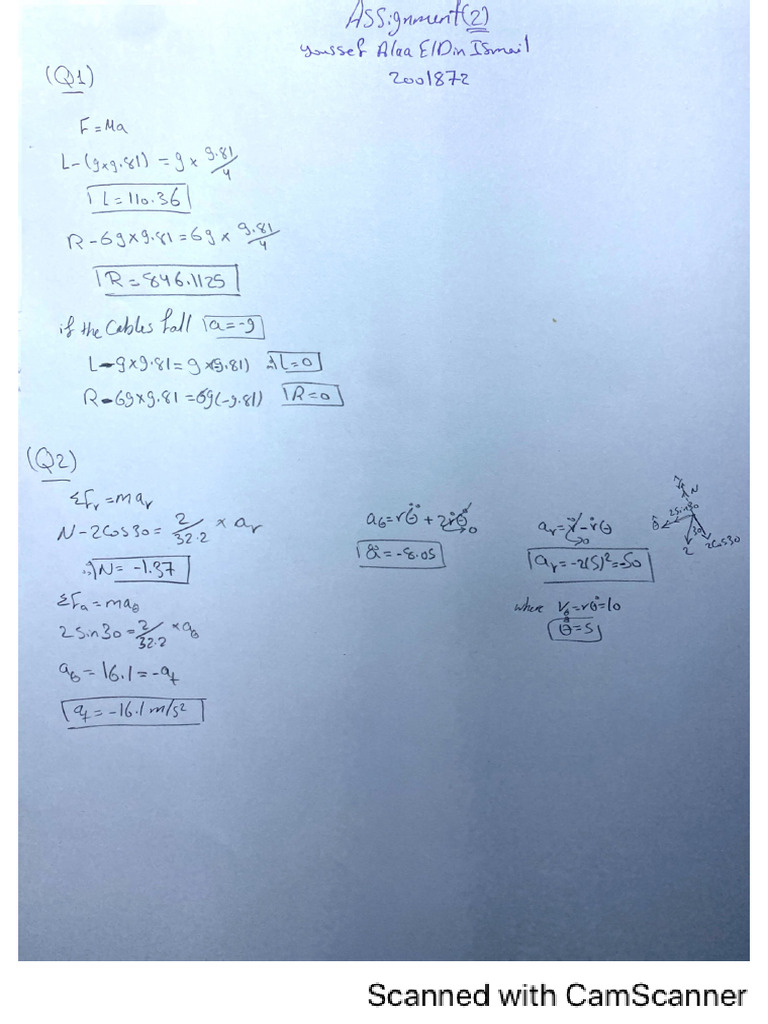 Assignment(2)
Youssef Alaa ElDin Ismail
2001872
(Q1)
F = Ma
L-(9x9.81) = 9 x 9.81/4
L = 110.36
R - 69x9.81 = 69 x 9.81/4
R = 846.1125
if the Cables fall a = -g
L-9x9.81 = 9 x(9.81) ∴ L=0
R-69x9.81 = 69(-9.81) R=0
(Q2)
ΣFr = mar
N - 2Cos30 = 2/32.2 x ar
∴ N = -1.37
ΣFa = maθ
2 sin30 = 2/32.2 x aθ
aθ = 16.1 = -at
at = -16.1 m/s²
aθ = rθ̈ + 2ṙθ̇ 0
θ̈ = -8.05
ar = r̈ - rθ̇ 0
ar = -2(5)² = -50
where Vθ = rθ̇ = 10
θ̇ = 5
r
N
2sin30
θ
30
2
2Cos30
Scanned with CamScanner